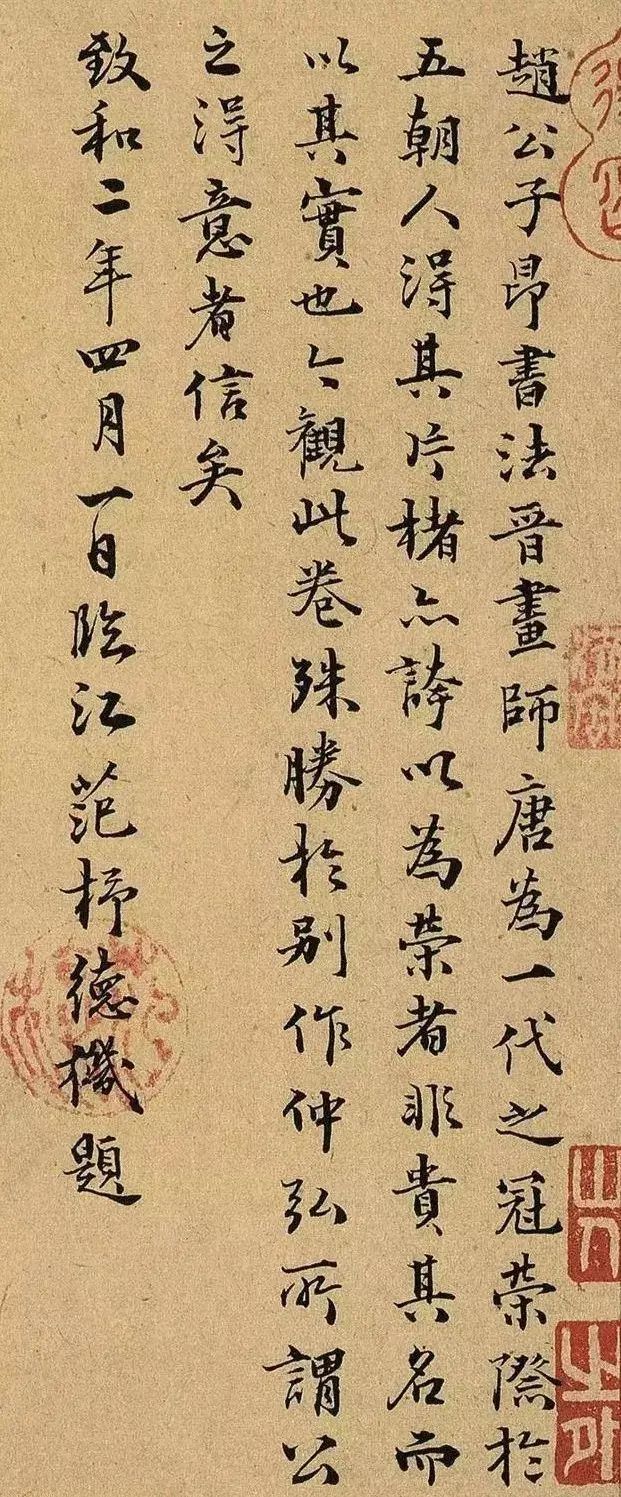 趙公子昂書法晉畫師唐為一代之冠荣際於
五朝人淂其片楮亦誇以為荣者非貴其名而
以其實也今觀此卷殊勝於别作仲弘所謂公
之淂意者信矣
致和二年四月一日臨江范梈德機題